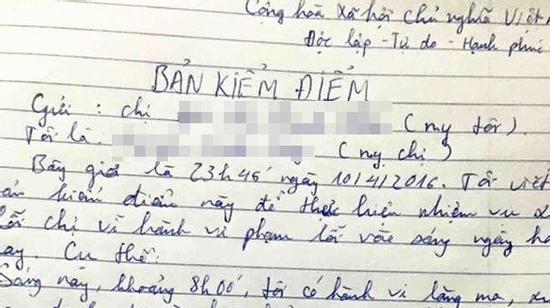 Cộng hòa Xã hội Chủ nghĩa Việt
Độc lập - Tự do - Hạnh phúc
BẢN KIỂM ĐIỂM
Gửi : chị (my tôi).
Tôi là. (my chị)
Bây giờ là 23h45' ngày 10/4/2016. Tôi viết
kiểm điểm này để thực hiện nhiệm vụ
lỗi chị vì hành vi phạm lỗi vào sáng ngày
nay. Cụ thể:
Sáng nay, khoảng 8h00, tôi có hành vi lăng mạ,